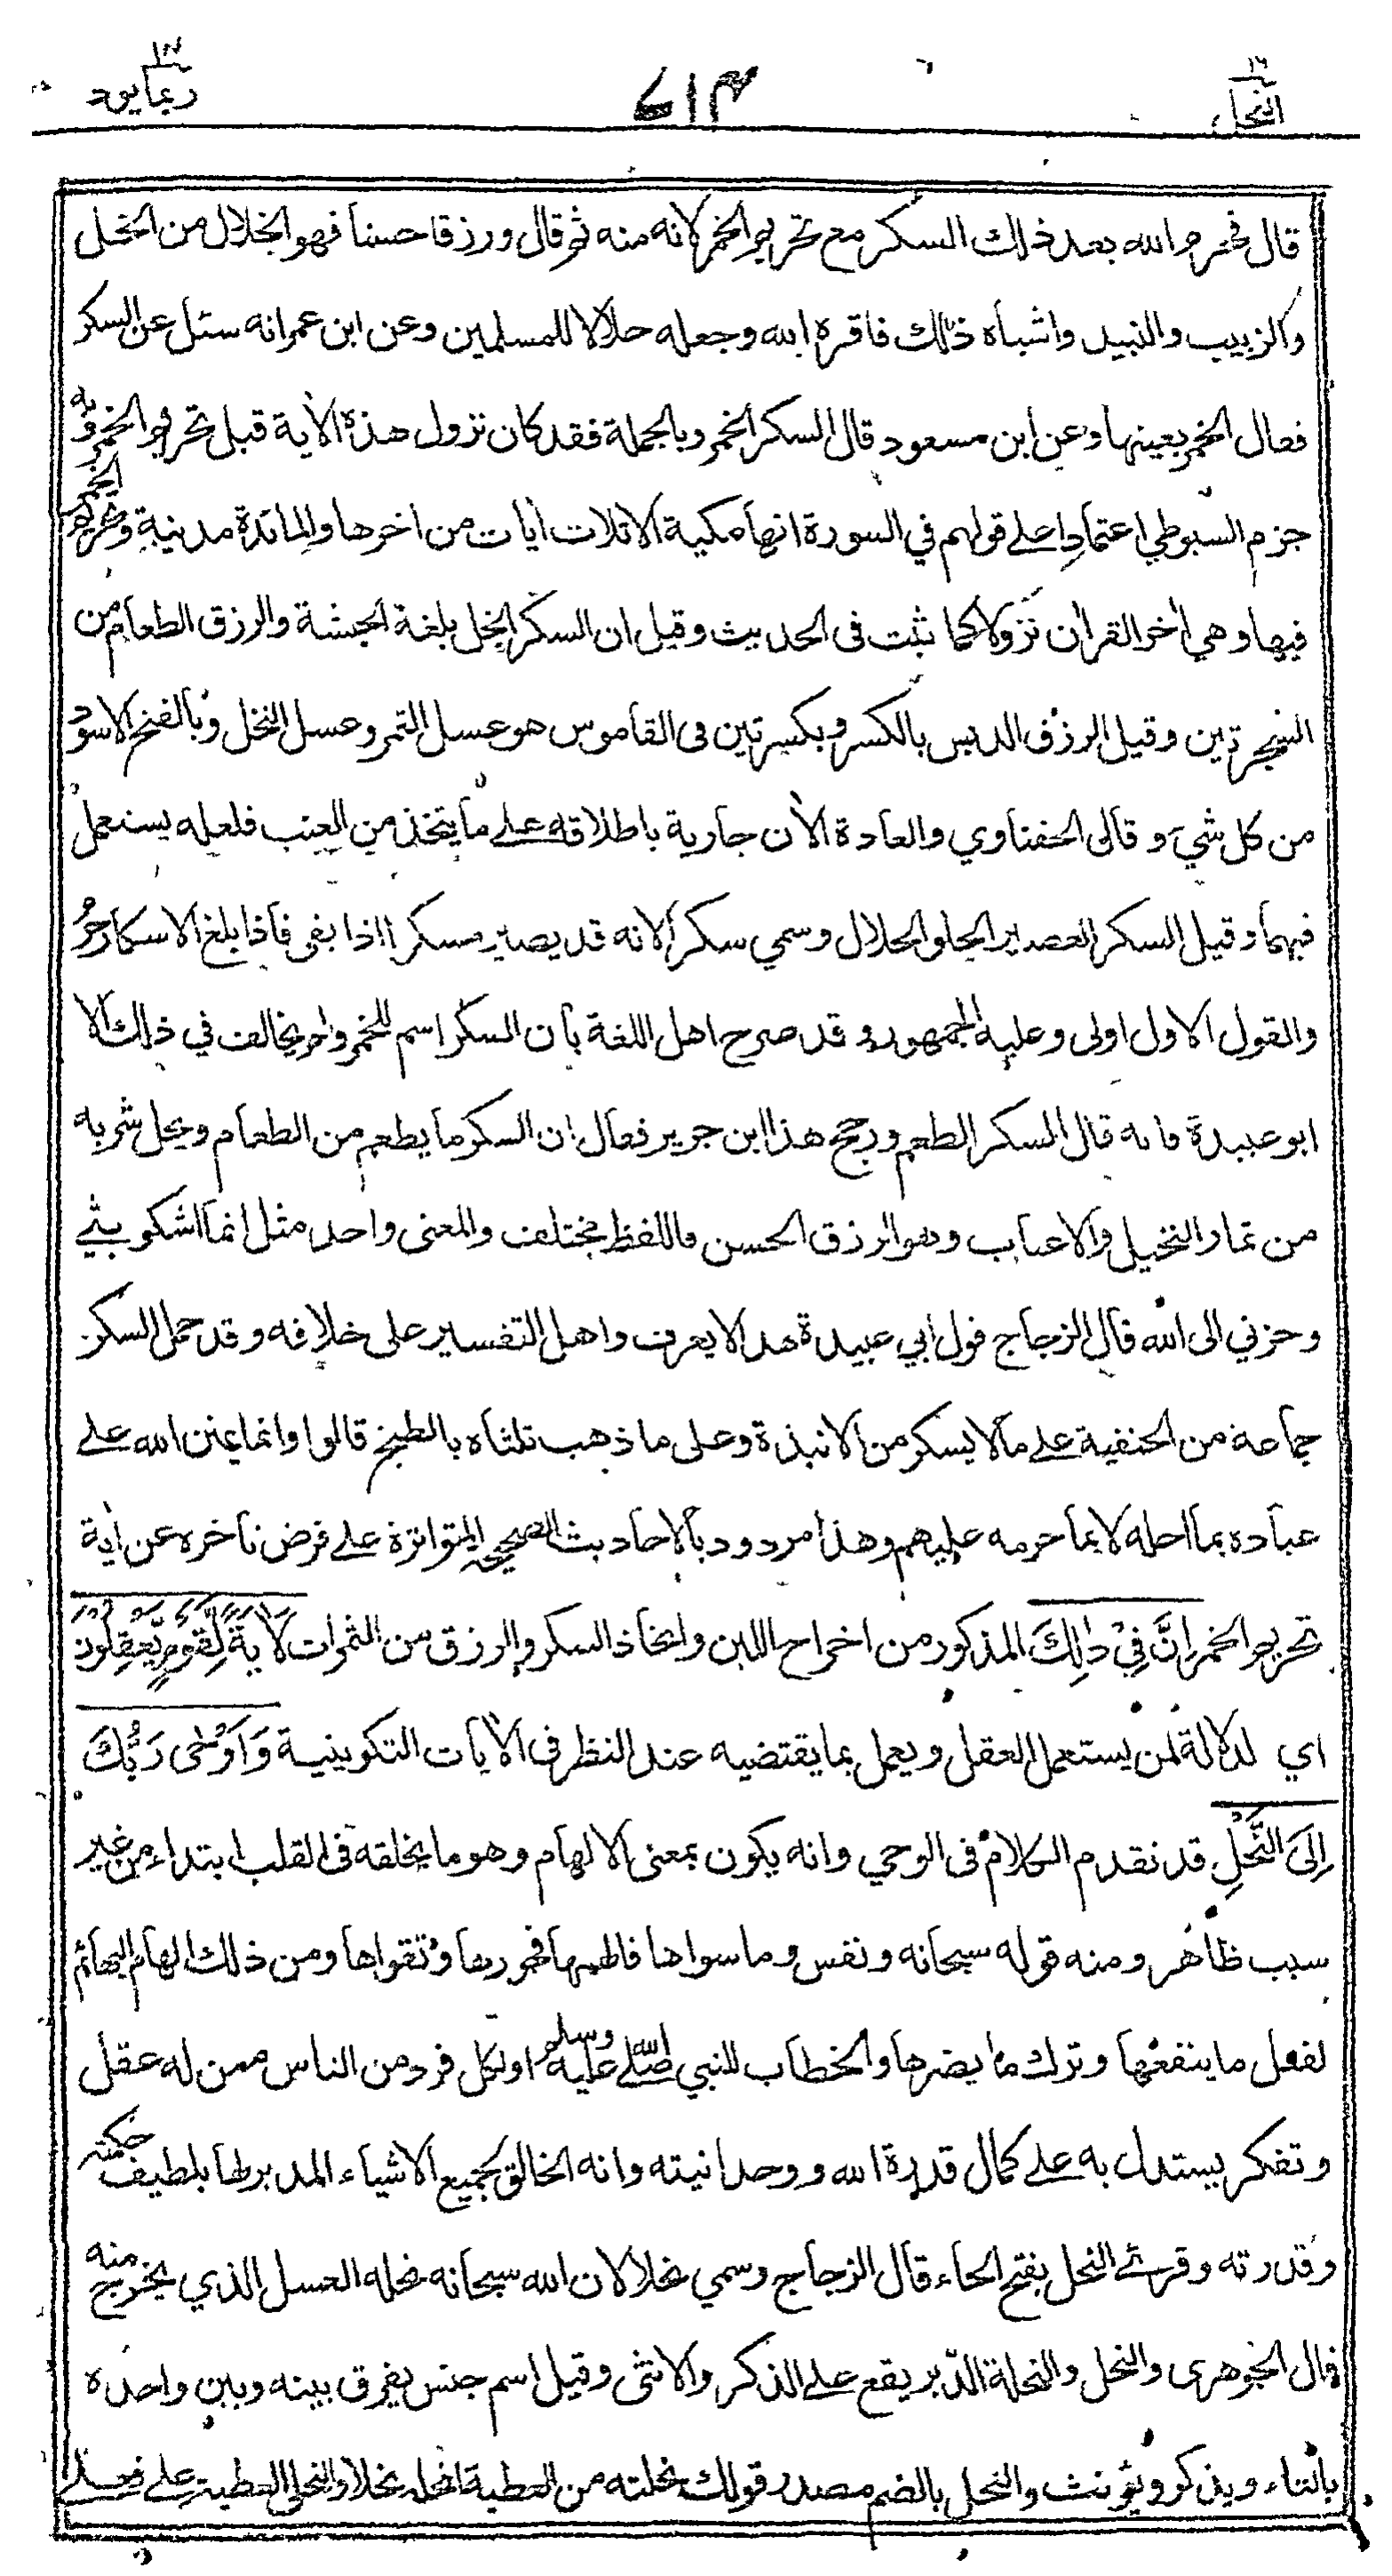 النحل ١٦
٦١٣
ربما ١٤
قال فحرم الله بعد ذلك السكر مع تحريم الخمر لانه منه ثم قال ورزقا حسنا فهو الحلال من الخل
والزبيب والنبيذ واشباه ذلك فاقره الله وجعله حلالا للمسلمين وعن ابن عمر انه سئل عن السكر
فقال الخمر بعينها وعن ابن مسعود قال السكر الخمر وبالجملة فقد كان نزول هذه الأية قبل تحريم الخمر وبه
جزم السيوطي اعتمادا على قولهم في السورة انها مكية الا ثلاث أيات من اخرها والمائدة مدنية وتحريم الخمر
فيها وهي أخر القرأن نزولا كما ثبت في الحديث وقيل ان السكر الخل بلغة الحبشة والرزق الطعام من
الشجرتين وقيل الرزق الدبس بالكسر وبكسرتين في القاموس هو عسل التمر وعسل النحل وبالفتح الاسود
من كل شيء وقال الحفناوي والعادة الأن جارية باطلاقه على ما يتخذ من العنب فلعله يستعمل
فيهما وقيل السكر العصير الحلو الحلال وسمي سكرا لانه قد يصير مسكرا اذا بقي فاذا بلغ الاسكار حرم
والقول الاول اولى وعليه الجمهور وقد صرح اهل اللغة بأن السكر اسم للخمر ولم يخالف في ذلك الا
ابو عبيدة فانه قال السكر الطعم ورجح هذا ابن جرير فقال ان السكر ما يطعم من الطعام ويحل شربه
من ثمار النخيل والاعناب وهو الرزق الحسن فاللفظ مختلف والمعنى واحد مثل انما اشكو بثي
وحزني الى الله قال الزجاج قول ابي عبيدة هذا لا يعرف واهل التفسير على خلافه وقد حمل السكر
جماعة من الحنفية على ما لا يسكر من الانبذة وعلى ما ذهب ثلثاه بالطبخ قالوا وانما يمتن الله على
عباده بما احله لا بما حرمه عليهم وهذا مردود بالاحاديث الصحيحة المتواترة على فرض تأخره عن أية
تحريم الخمر اِنَّ فِيْ ذٰلِكَ المذكور من اخراج اللبن واتخاذ السكر والرزق من الثمرات لَاٰيَةً لِّقَوْمٍ يَّعْقِلُوْنَ
اي لدلالة لمن يستعمل العقل ويعمل بما يقتضيه عند النظر في الأيات التكوينية وَاَوْحٰى رَبُّكَ
اِلَى النَّحْلِ قد تقدم الكلام في الوحي وانه يكون بمعنى الالهام وهو ما يخلقه في القلب ابتداء من غير
سبب ظاهر ومنه قوله سبحانه ونفس وما سواها فالهمها فجورها وتقواها ومن ذلك الهام البهائم
لفعل ما ينفعها وترك ما يضرها والخطاب للنبي صلى الله عليه وسلم او لكل فرد من الناس ممن له عقل
وتفكر يستدل به على كمال قدرة الله ووحدانيته وانه الخالق لجميع الاشياء المدبر لها بلطيف حكمته
وقدرته وقرئ النحل بفتح الحاء قال الزجاج وسمي نحلا لان الله سبحانه نحله العسل الذي يخرج منه
قال الجوهري والنحل والنحلة الدبر يقع على الذكر والانثى وقيل اسم جنس يفرق بينه وبين واحده
بالتاء ويذكر ويؤنث والنحل بالضم مصدر قولك نحلته من العطية انحله نحلا والنحلى العطية على فعلى